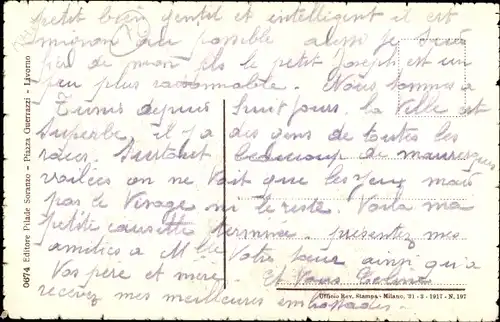 petit bien gentil et intelligent il est
mignon au possible aussi je suis
de mon fils le petit Joseph est un
peu plus raisonnable. Nous sommes a
Tunis depuis huit jours. la Ville est
superbe, il y a des gens de toutes les
races. Surtout beaucoup de mauresques
voilées on ne Vait que les yeux mais
pas le Visage ni le reste. Voila ma
petite causette terminee. presentez mes
amities a Mlle Votre sœur ainsi qu'a
Vos père et mère. Et Vous
recevez mes meilleures embrassades.
0674 Editore Pilade Soranzo - Piazza Guerrazzi - Livorno
Ufficio Rev. Stampa - Milano, 31-3-1917 - N. 197